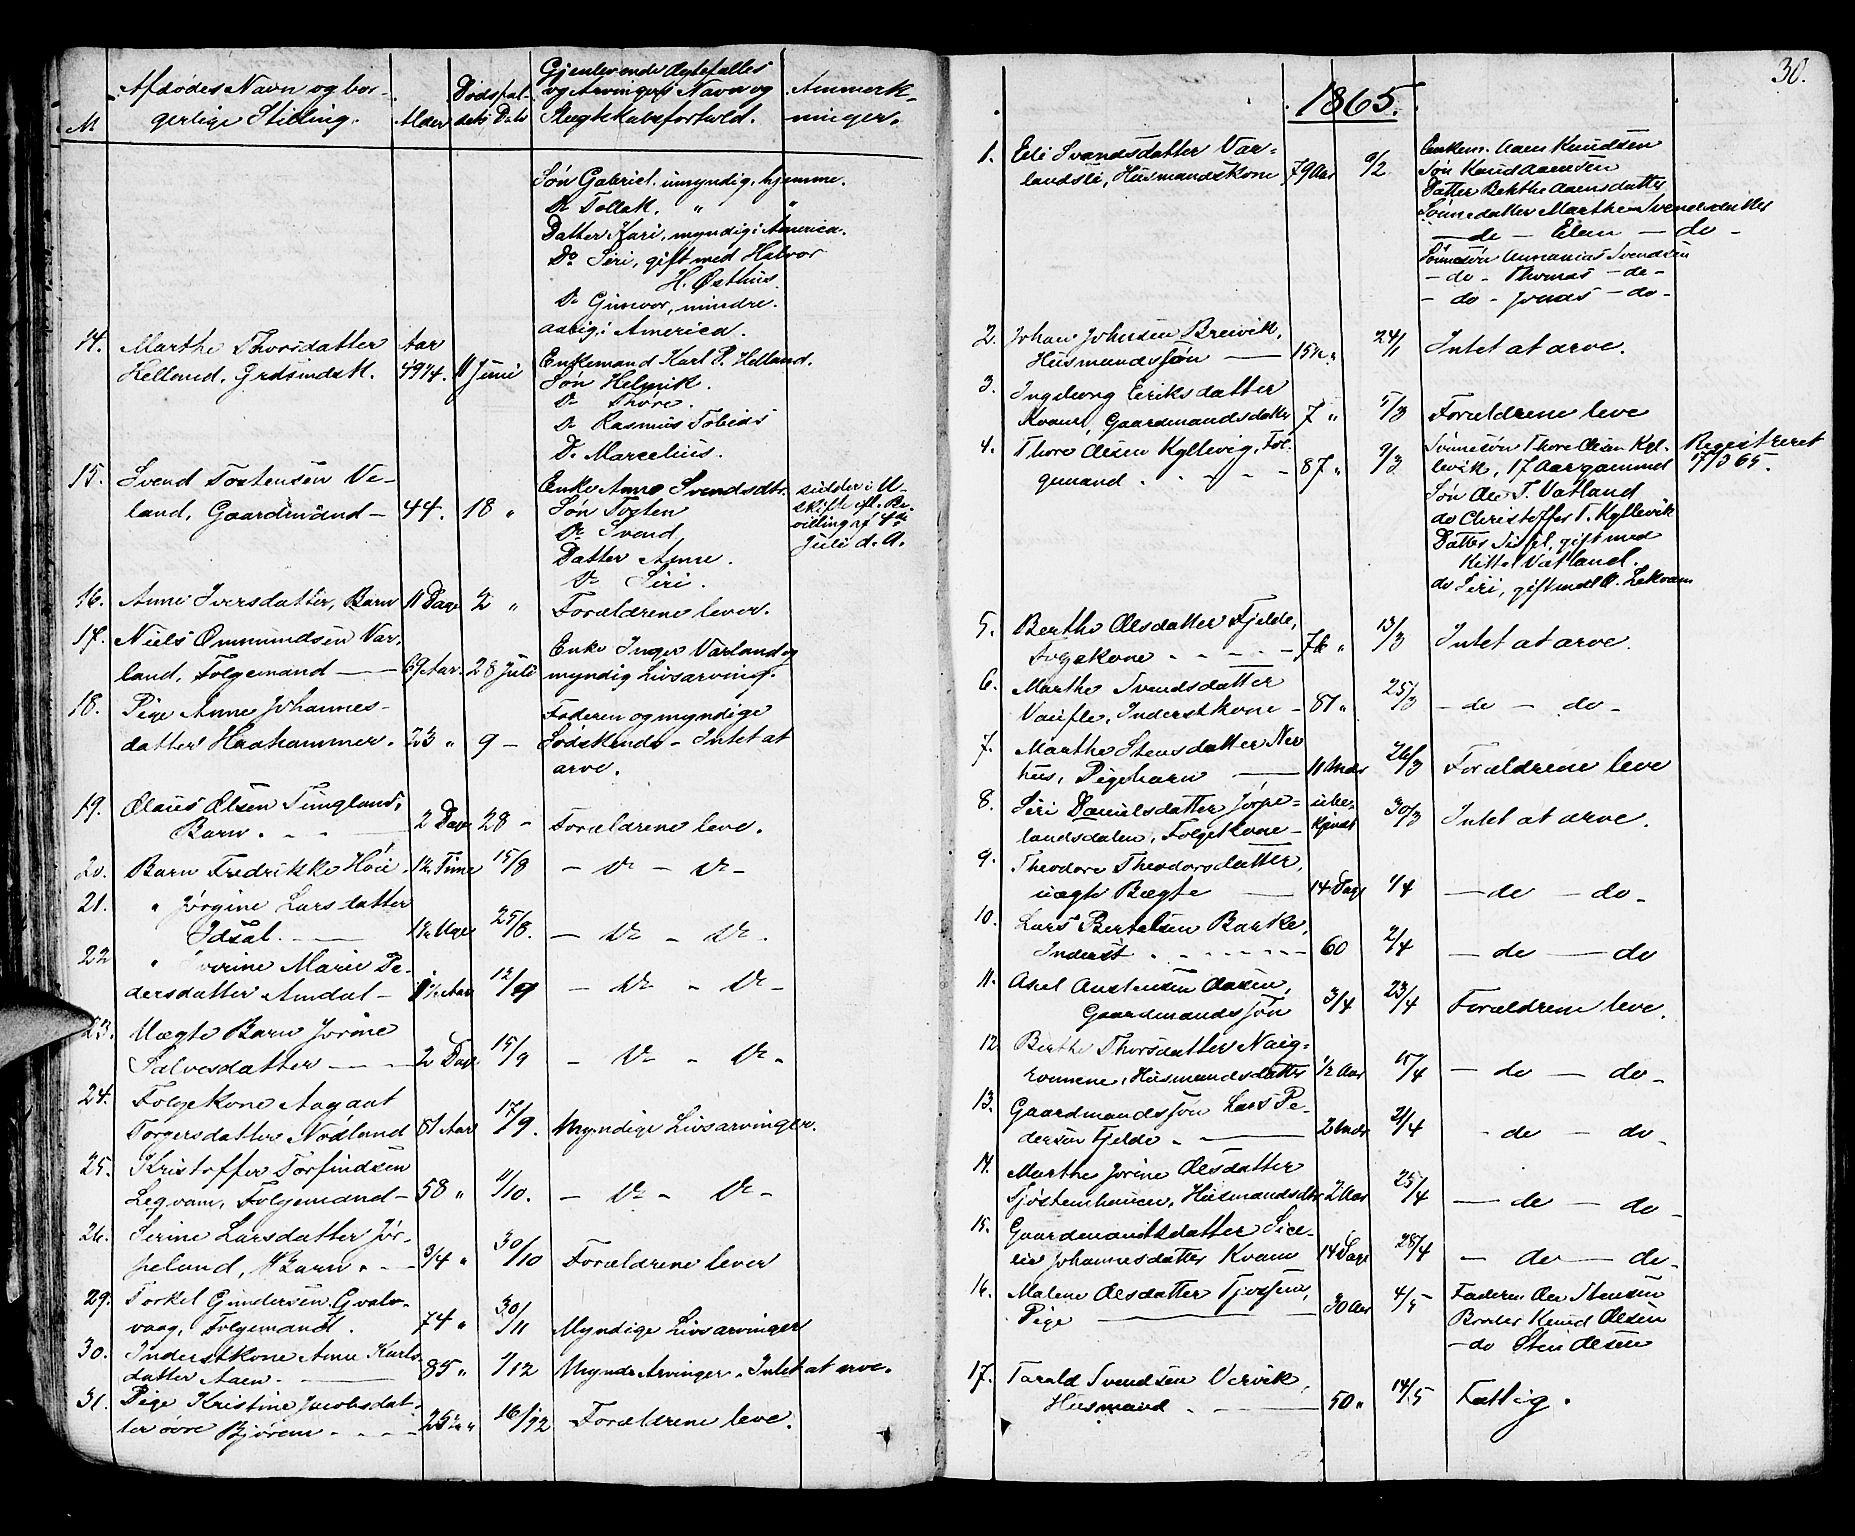 Afdødes Navn og bor-
gerlige Stilling.
Alder
Dødsfal-
dets Dato
Gjenlevende Ægtefælles
og Arvingers Navn og
Slægtskabsforhold.
Anmærk-
ninger.
Søn Gabriel. umyndig, hjemme.
Do Tollak. " "
Datter Kari, myndig i America.
Do Siri, gift med Halvor
H. Østhus.
Do Gunvor, mindre-
aarig i America.
14. Marthe Thorsdatter Aar
Helland, Grdmdsk. 49¼. 11 Juni Enkemand Karl P. Helland.
Søn Helmik.
Do Thore.
Do Rasmus Tobias
Do Marcelius.
15. Svend Tostensen Ve- Enke Anne Svendsdtr. sidder i U-
land, Gaardmand - 44. 18 " Søn Tosten skifte efl. Be-
Do Svend villing af 4de
Datter Anne. Juli d. A.
Do Siri.
16. Anne Iversdatter, Barn 11 Dage 2 " Forældrene lever.
17. Niels Ommundsen Var- Enke Inger Varland og
land, Folgemand 69 Aar. 28 Juli myndig Livsarving.
18. Pige Anne Johannes- Faderen og myndige
datter Haahammer. 23 " 9 - Sødskende - Intet at
arve.
19. Olaus Olsen Tungland,
Barn. 2 Dage 28 - Forældrene leve.
20. Barn Fredrikke Høie 1½ Time 15/8 - Do - Do -
21. " Jørgine Larsdatter
Idsal. 1½ Uge 25/8. - Do - Do.
22 " Iverine Marie Pe-
dersdatter Amdal - 1½ Aar 12/9 - Do - Do -
23. Uægte Barn Jorine
Salvesdatter 2 Dage 15/9 - Do - Do -
24. Folgekone Aagaat
Torgersdatter Nodland 81 Aar 17/9. Myndige Livsarvinger.
25. Kristoffer Torfindsen
Leqvam, Folgemand - 58 " 11/10. - Do - Do -
26. Serine Larsdatter Jør-
peland, Barn. 3/4 " 30/10 Forældrene lever
29. Torkel Gundersen Gvalv-
vaag, Folgemand. 74 " 30/11 Myndige Livsarvinger
30. Inderstkone Anne Karls-
datter Aaen. 85 " 1/12 Mynde Arvinger. Intet at arve.
31. Pige Kristine Jacobsdat-
ter øvre Bjørem 25 " 16/12 Forældrene leve.
30.
1865.
1. Eli Svendsdatter Var- Enkem. Aaen Knudsen
landsli, Husmandskone 79 Aar 9/2 Søn Knud Aanensen
Datter Berthe Aanensdatter
Sønnedatter Marthe Svendsdatter
- do - Elen - do -
Sønnesøn Annanias Svendsen
- do - Thomas - do -
- do - Jonas - do -
2. Johan Johnsen Breivik,
Husmandssøn 15½ " 24/1 Intet at arve.
3. Ingeborg Eriksdatter
Kvam, Gaardmandsdatter 7 " 5/3 Forældrene leve
4. Thore Olsen Kyllevig, Fol- Sønnesøn Thore Olsen Kyl- Registreret
gemand. 87 " 9/3 levik, 17 Aar gammel 17/3 65.
Søn Ole T. Vatland
do Christoffer T. Kyllevik
Datter Sissel, gift med
Kittel Vatland.
do Siri, gift med O. Lekvam
5. Berthe Olsdatter Fjelde,
Folgekone 76 " 13/3 Intet at arve.
6. Marthe Svendsdatter
Inderstkone - 87 " 25/3 - do - do -
7. Marthe Stensdatter Ner
hus, Pigebarn 11 Mdr 26/3 Forældrene leve
8. Siri Danielsdatter Jørpe- ube-
landsdalen, Folgekone - kjendt 30/3 Intet at arve.
9. Theodore Theodorsdatter,
uægte Bægte 14 Dage 1/4 - do - do -
10. Lars Bertelsen Barke,
Inderst 60 2/4 - do - do
11. Axel Austensen Aasen,
Gaardmandssøn 3/4 23/4 Forældrene leve.
12. Berthe Thorsdatter Naig-
Husmandsdatter ½ Aar 15/4 - do - do -
13. Gaardmandssøn Lars Pe-
dersen Fjelde 2 Mdr 21/4 - do - do -
14. Marthe Jorine Olsdatter
Tjøstemhaven, Husmandsdtr 2 Aar 25/4 - do - do -
15. Gaardmandsdatter Sice-
lie Johannesdatter Kvam 14 Dage 28/4 - do - do -
16. Malene Olsdatter Tjossem, Faderen Ole Stensen
Pige 30 Aar 4/5 Broder Knud Olsen
- do Sten Olsen
17. Tarald Svendsen Vervik,
Husmand 50 " 14/5 Fattig.